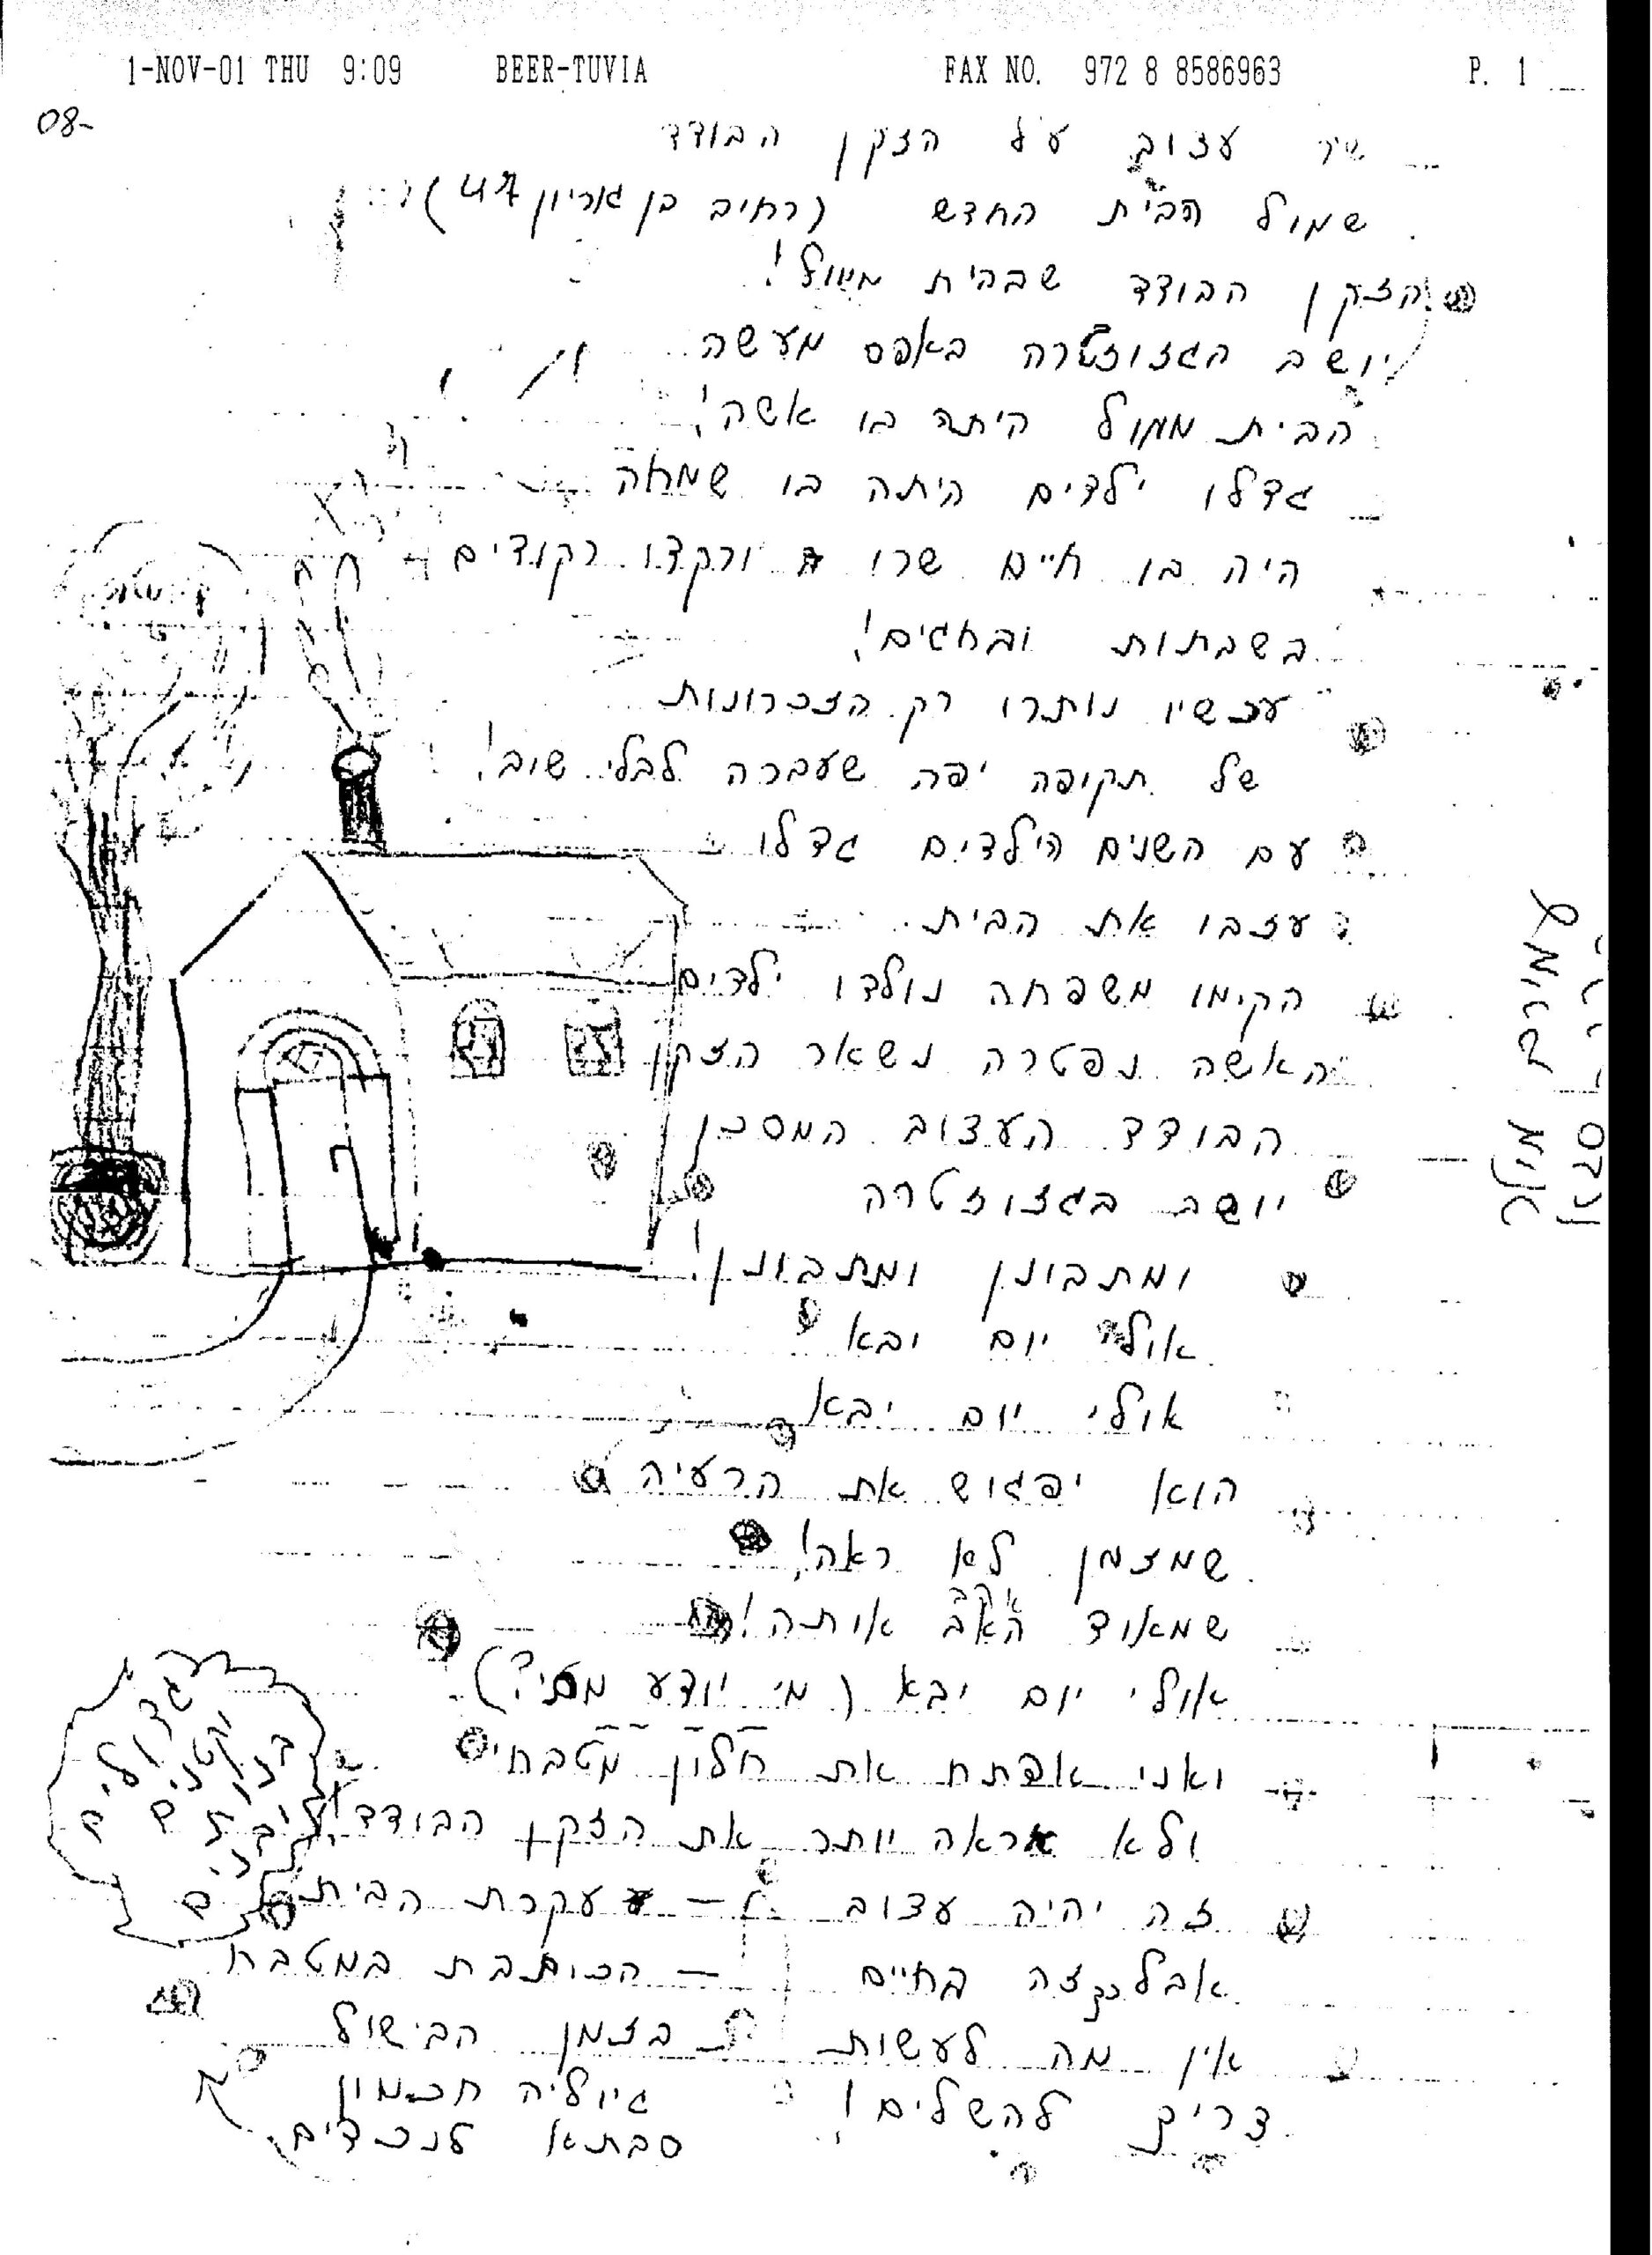 1-NOV-01 THU 9:09 BEER-TUVIA FAX NO. 972 8 8586963 P. 1
08-
שיר עצוב על הזקן הבודד
שמול הבית החדש (רחוב בן גוריון 47)
הזקן הבודד שבבית ממול!
יושב בגזוזטרה באפס מעשה
הבית ממול היתה בו אשה!
גדלו ילדים היתה בו שמחה
היה בו חיים שרו ורקדו רקודים
בשבתות ובחגים!
עכשיו נותרו רק הזכרונות
של תקופה יפה שעברה לבלי שוב!
עם השנים הילדים גדלו
עזבו את הבית
הקימו משפחה נולדו ילדים
האשה נפטרה נשאר הזקן
הבודד העצוב המסכן
יושב בגזוזטרה
ומתבונן ומתבונן!
אולי יום יבא
אולי יום יבא
הוא יפגוש את הרעיה
שמזמן לא ראה!
שמאוד אהב אותה!
אולי יום יבא (מי יודע מתי?)
ואני אפתח את חלון מטבחי
ולא אראה יותר את הזקן הבודד!
זה יהיה עצוב – עקרת הבית
אבל ככה בחיים – הכותבת במטבח
אין מה לעשות בזמן הבישול
צריך להשלים! גיוליה חכמון
סבתא לנכדים
גדולים
וקטנים
עמירם